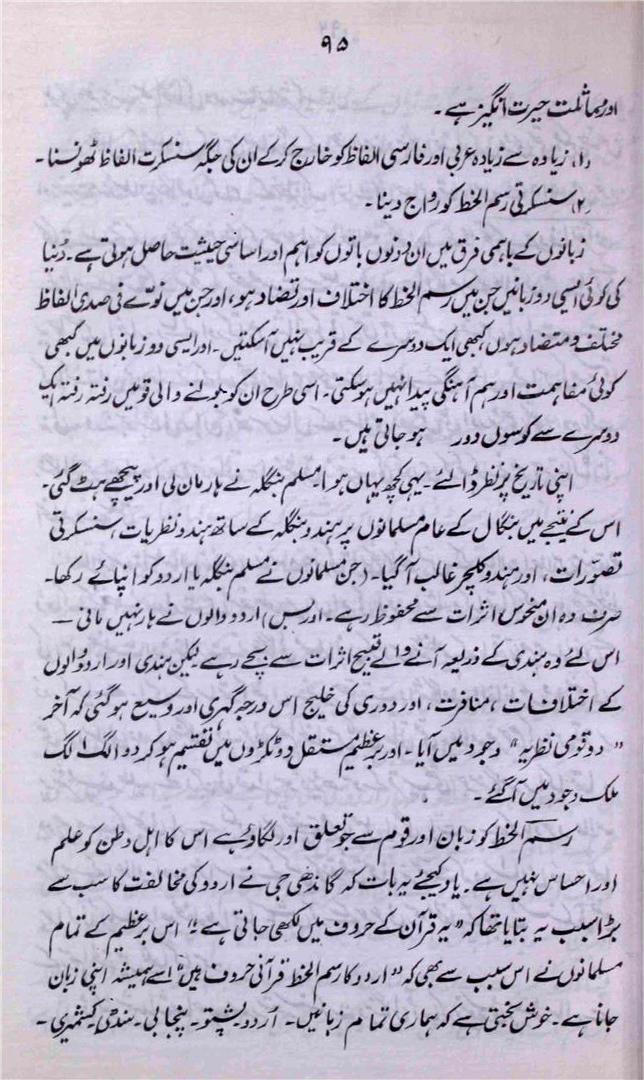 ۹۵
اور مماثلت حیرت انگیز ہے ۔
(۱) زیادہ سے زیادہ عربی اور فارسی الفاظ کو خارج کر کے ان کی جگہ سنسکرت الفاظ ٹھونسنا ۔
(۲) سنسکرتی رسم الخط کو رواج دینا ۔
زبانوں کے باہمی فرق میں ان دونوں باتوں کو اہم اور اساسی حیثیت حاصل ہوتی ہے ۔ دُنیا
کی کوئی ایسی دو زبانیں جن میں رسم الخط کا اختلاف اور تضاد ہو، اور جن میں نوّے فی صدی الفاظ
مختلف و متضاد ہوں کبھی ایک دوسرے کے قریب نہیں آسکتیں ۔ اور ایسی دو زبانوں میں کبھی
کوئی مفاہمت اور ہم آہنگی پیدا نہیں ہو سکتی ۔ اسی طرح ان کو بولنے والی قومیں رفتہ رفتہ ایک
دوسرے سے کوسوں دور ہو جاتی ہیں ۔
اپنی تاریخ پر نظر ڈالئے ۔ یہی کچھ یہاں ہوا۔ مسلم بنگلہ نے ہار مان لی اور پیچھے ہٹ گئی ۔
اس کے نتیجے میں بنگال کے عام مسلمانوں پر ہندو بنگلہ کے ساتھ ہندو نظریات، سنسکرتی
تصوّرات، اور ہندو کلچر غالب آگیا ۔ (جن مسلمانوں نے مسلم بنگلہ یا اردو کو اپنائے رکھا ۔
صرف وہ ان منحوس اثرات سے محفوظ رہے ۔ اور بس) اردو والوں نے ہار نہیں مانی —
اس لئے وہ ہندی کے ذریعہ آنے والے قبیح اثرات سے بچے رہے لیکن ہندی اور اردو والوں
کے اختلافات، منافرت، اور دوری کی خلیج اس درجہ گہری اور وسیع ہو گئی کہ آخر
"دو قومی نظریہ" وجود میں آیا ۔ اور برّعظیم مستقل دو ٹکڑوں میں تقسیم ہو کر دو الگ الگ
ملک وجود میں آگئے ۔
رسم الخط کو زبان اور قوم سے جو تعلق اور لگاؤ ہے اس کا اہل وطن کو علم
اور احساس نہیں ہے ۔ یاد کیجئے یہ بات کہ گاندھی جی نے اردو کی مخالفت کا سب سے
بڑا سبب یہ بتایا تھا کہ "یہ قرآن کے حروف میں لکھی جاتی ہے ؛" اس برّعظیم کے تمام
مسلمانوں نے اس سبب سے بھی کہ "اردو کا رسم الخط قرآنی حروف ہیں" اسے ہمیشہ اپنی زبان
جانا ہے ۔ خوش بختی ہے کہ ہماری تمام زبانیں ۔ اُردو ۔ پشتو ۔ پنجابی ۔ سندھی کشمیری ۔